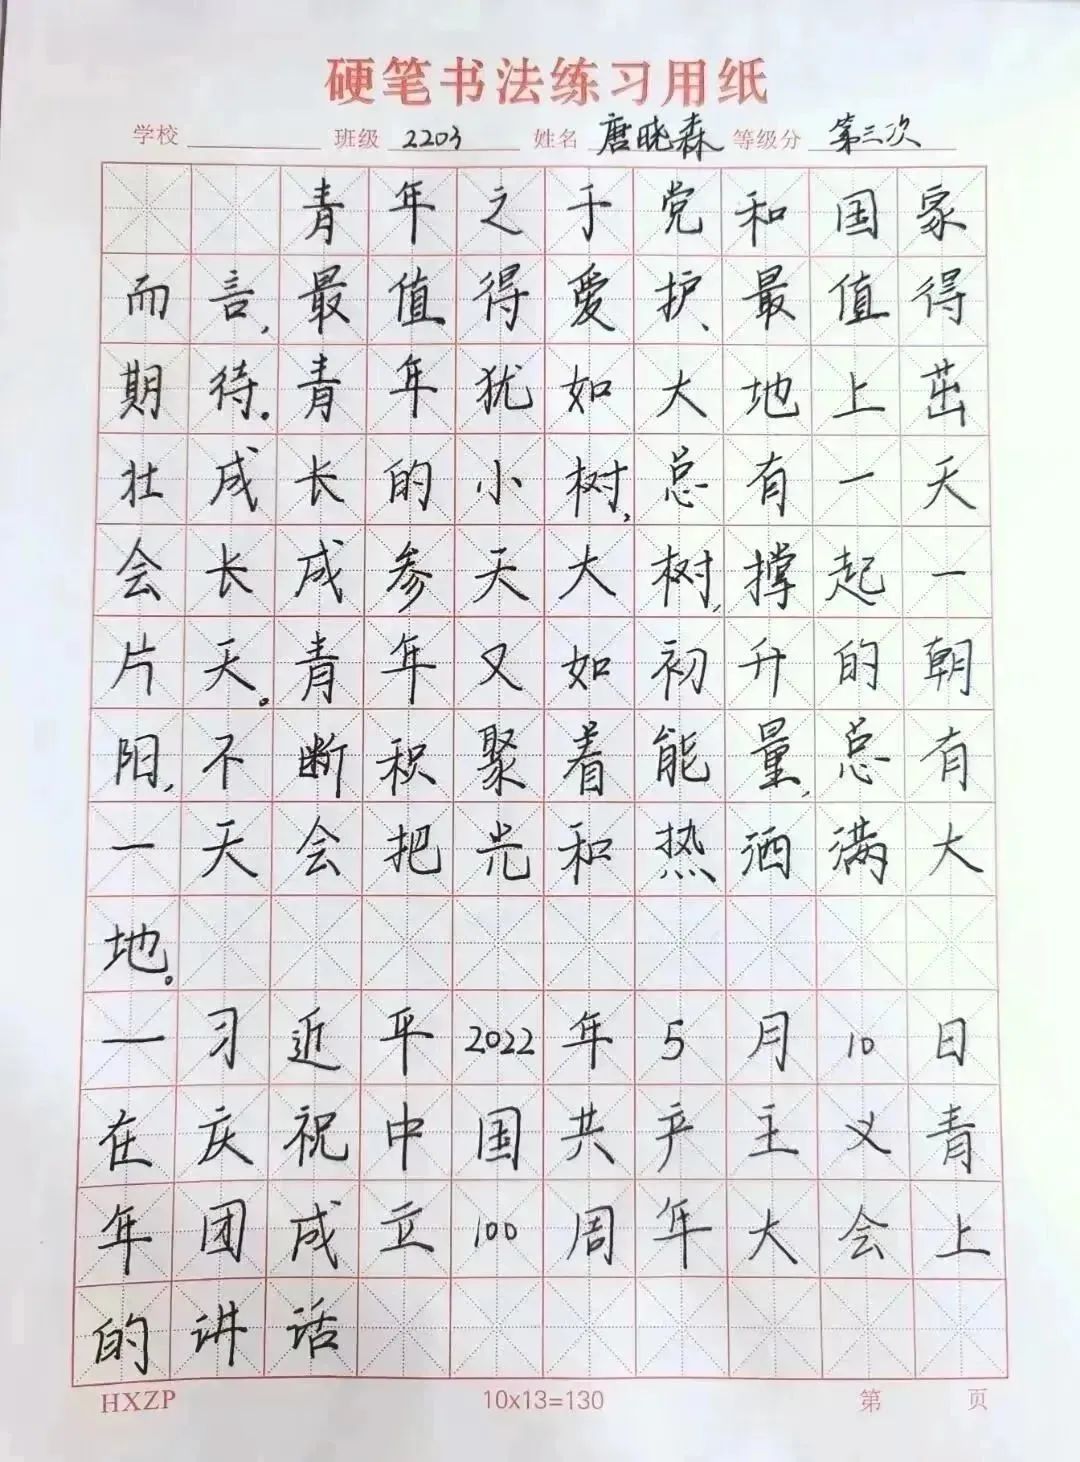 硬笔书法练习用纸
学校 班级 2203 姓名 唐晓森 等级分 第三次
青年之于党和国家
而言,最值得爱护、最值得
期待。青年犹如大地上茁
壮成长的小树,总有一天
会长成参天大树,撑起一
片天。青年又如初升的朝
阳,不断积聚着能量,总有
一天会把光和热洒满大
地。
—习近平2022年5月10日
在庆祝中国共产主义青
年团成立100周年大会上
的讲话
HXZP 10x13=130 第 页